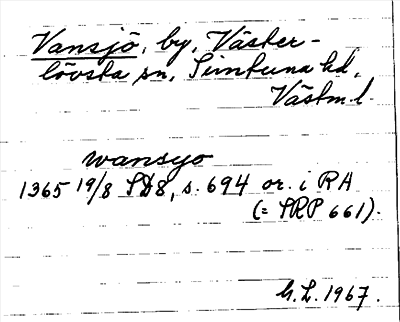 Vansjö, by, Väster-
lövsta sn, Simtuna hd,
Västm.l.
wansyo
1365 19/8 SD8, s. 694 or. i RA
(= SRP 661).
G.L. 1967.